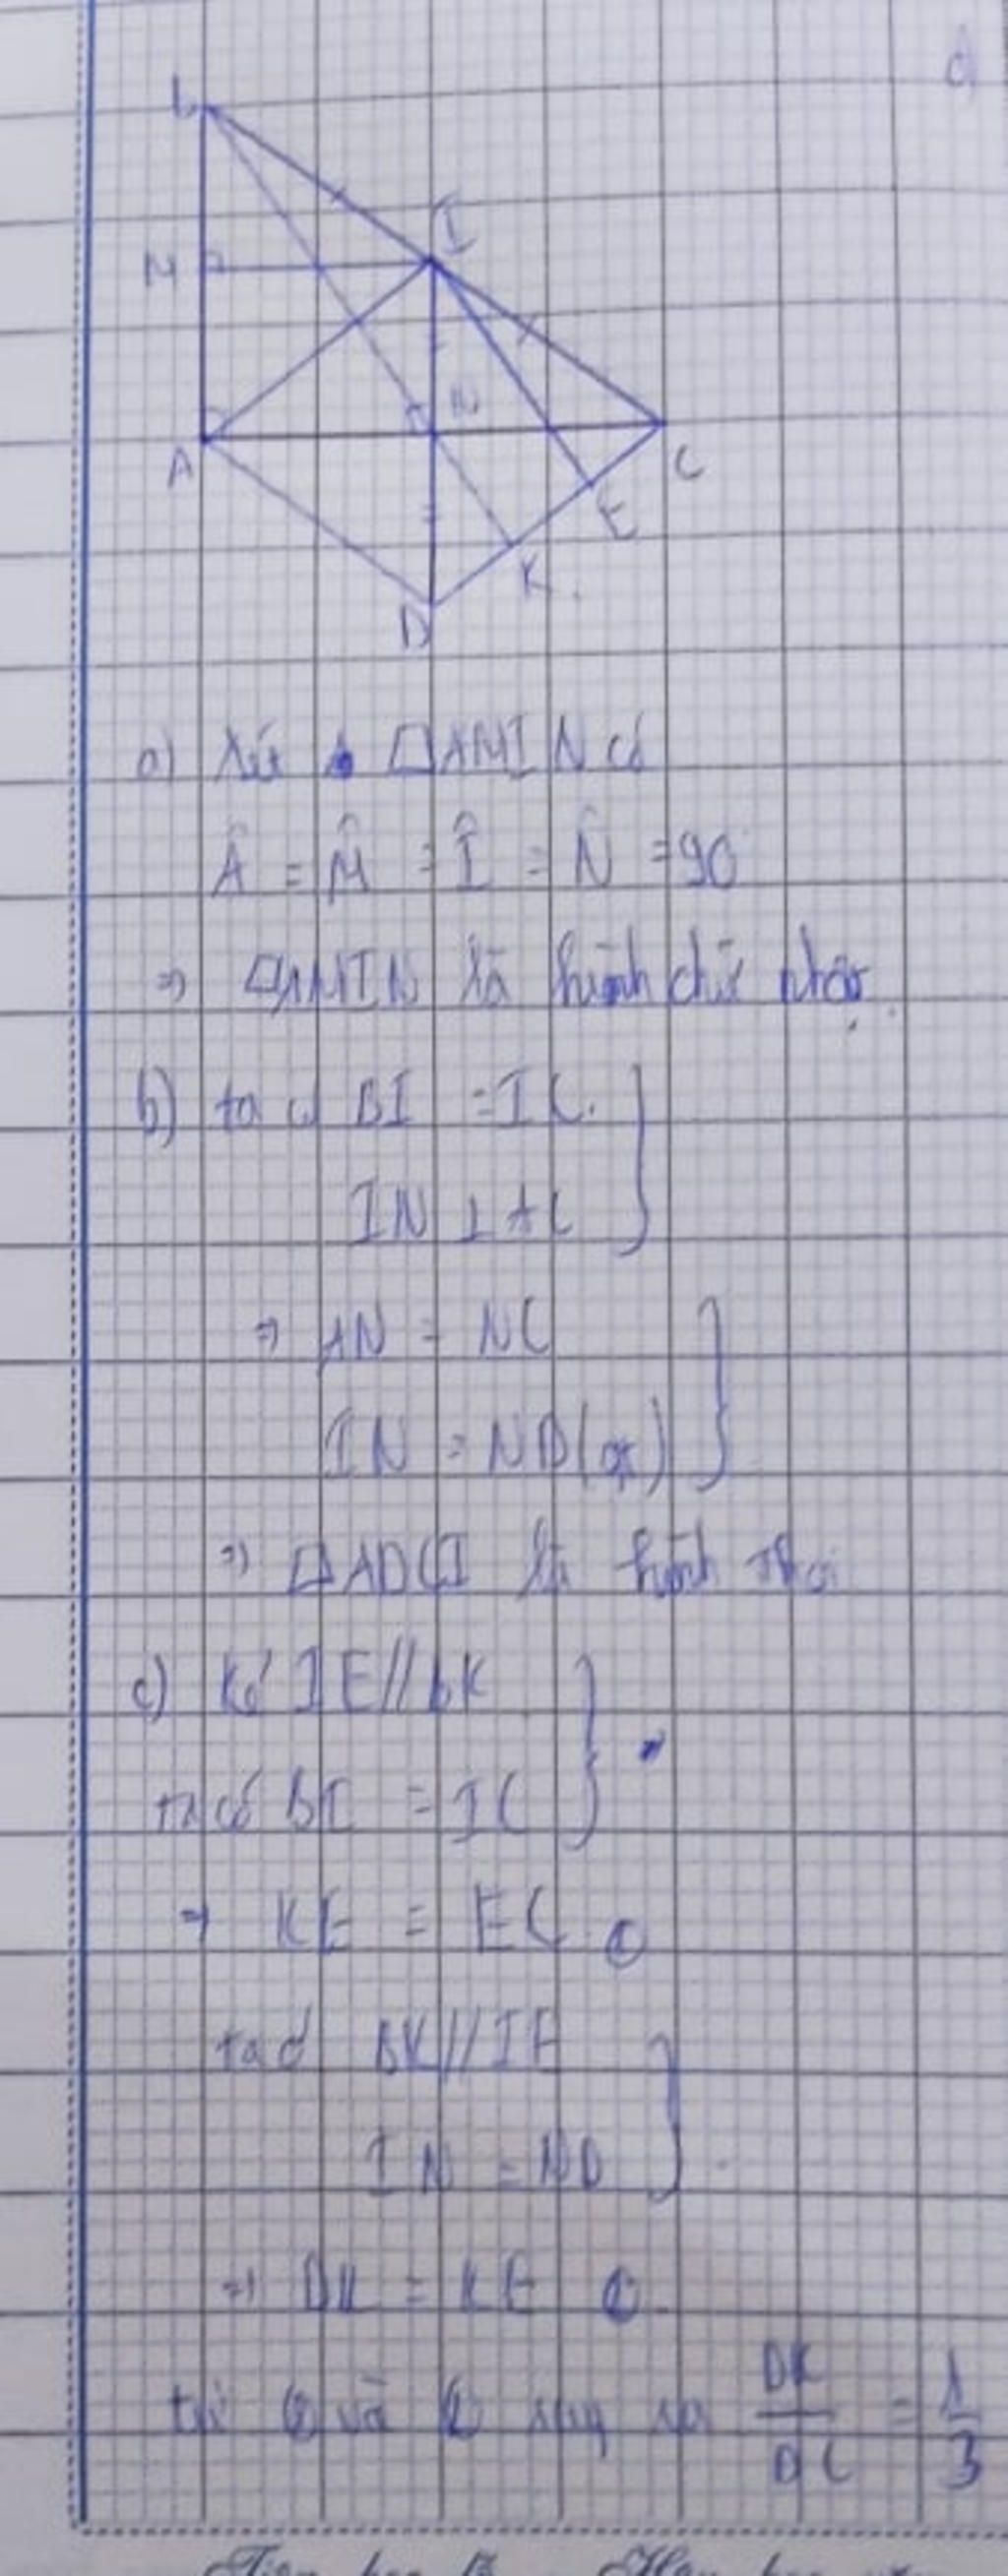 d)
B
I
M
N
A
C
E
K
D
a) Xét □AMIN có
Â = M̂ = Î = N̂ = 90
=> □AMIN là hình chữ nhật
b) ta có BI = IC
IN ⊥ AC
=> AN = NC
IN = ND (gt)
=> □ADCI là hình thoi
c) Kẻ IE // BK
ta có BI = IC
=> KE = EC ①
ta có BK // IE
IN = ND
=> DK = KE ②
từ ① và ② suy ra DK/DC = 1/3